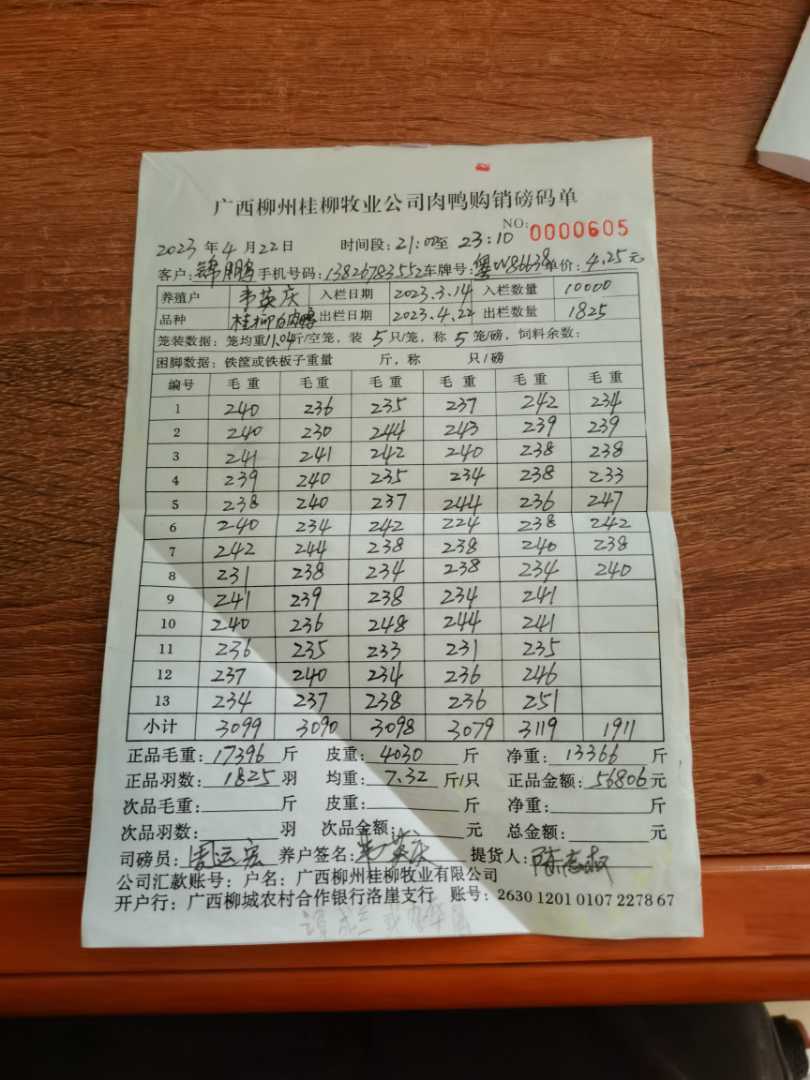 广西柳州桂柳牧业公司肉鸭购销磅码单
NO: 0000605
2023 年 4 月 22 日 时间段: 21:00至 23:10
客户: 锦鹏 手机号码: 13826783552 车牌号: W86638 单价: 4.25元
养殖户 韦英庆 入栏日期 2023.3.14 入栏数量 10000
品种 桂柳白肉鸭 出栏日期 2023.4.22 出栏数量 1825
笼装数据: 笼均重11.04斤/空笼, 装 5 只/笼, 称 5 笼/磅, 饲料余数:
困脚数据: 铁筐或铁板子重量 斤, 称 只/磅
编号 毛重 毛重 毛重 毛重 毛重 毛重
1 240 236 235 237 242 234
2 240 230 244 243 239 239
3 241 241 242 240 238 238
4 239 240 235 234 238 233
5 238 240 237 244 236 247
6 240 234 242 224 238 242
7 242 244 238 238 240 238
8 231 238 234 238 234 240
9 241 239 238 234 241
10 240 236 248 244 241
11 236 235 233 231 235
12 237 240 234 236 246
13 234 237 238 236 251
小计 3099 3090 3098 3079 3119 1911
正品毛重: 17396 斤 皮重: 4030 斤 净重: 13366 斤
正品羽数: 1825 羽 均重: 7.32 斤/只 正品金额: 56806 元
次品毛重: 斤 皮重: 斤 净重: 斤
次品羽数: 羽 次品金额: 元 总金额: 元
司磅员: 周运宏 养户签名: 韦英庆 提货人: 陈志
公司汇款账号: 户名: 广西柳州桂柳牧业有限公司
开户行: 广西柳城农村合作银行洛崖支行 账号: 2630 1201 0107 2278 67